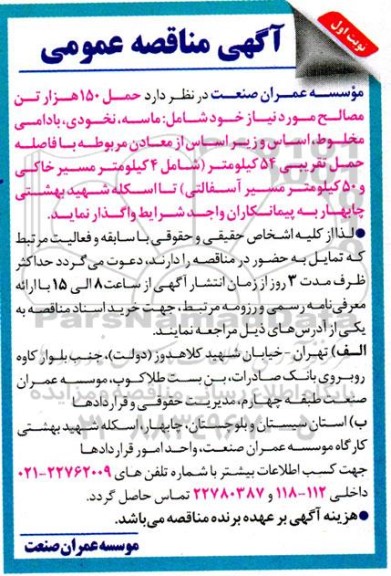 نوبت اول
آگهی مناقصه عمومی
مؤسسه عمران صنعت در نظر دارد حمل ۱۵۰ هزار تن
مصالح مورد نیاز خود شامل: ماسه، نخودی، بادامی
مخلوط، اساس و زیر اساس از معادن مربوطه با فاصله
حمل تقریبی ۵۴ کیلومتر (شامل ۴ کیلومتر مسیر خاکی
و ۵۰ کیلومتر مسیر آسفالتی) تا اسکله شهید بهشتی
چابهار به پیمانکاران واجد شرایط واگذار نماید.
●لذا از کلیه اشخاص حقیقی و حقوقی با سابقه و فعالیت مرتبط
که تمایل به حضور در مناقصه را دارند، دعوت می گردد حداکثر
ظرف مدت ۳ روز از زمان انتشار آگهی از ساعت ۸ الی ۱۵ با ارائه
معرفی نامه رسمی و رزومه مرتبط، جهت خرید اسناد مناقصه به
یکی از آدرس های ذیل مراجعه نمایند.
الف) تهران - خیابان شهید کلاهدوز (دولت)، جنب بلوار کاوه
روبروی بانک صادرات، بن بست طلاکوب، موسسه عمران
صنعت طبقه چهارم، مدیریت حقوقی و قراردادها
ب) استان سیستان و بلوچستان، چابهار، اسکله شهید بهشتی
کارگاه موسسه عمران صنعت، واحد امور قراردادها
جهت کسب اطلاعات بیشتر با شماره تلفن های ۲۲۷۶۲۰۰۹-۰۲۱
داخلی ۱۱۲-۱۱۸ و ۲۲۷۸۰۳۸۷ تماس حاصل گردد.
●هزینه آگهی بر عهده برنده مناقصه می باشد.
موسسه عمران صنعت